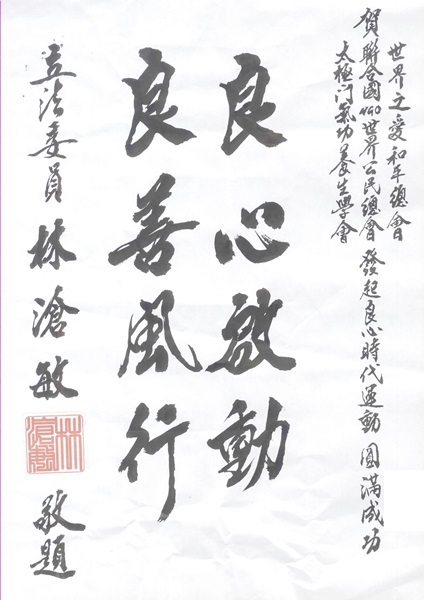 世界之愛和平總會
賀 聯合國NGO世界公民總會 發起良心時代運動 圓滿成功
太極門氣功養生學會
良心啟動
良善風行
立法委員 林滄敏 敬題
林滄敏